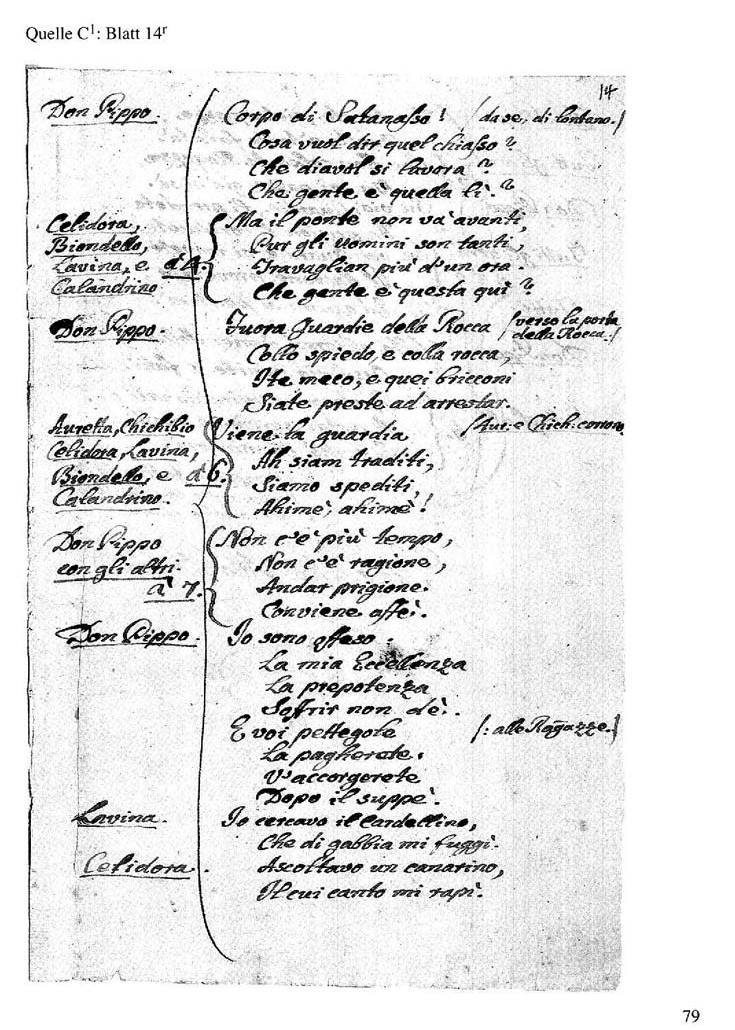 Quelle C1: Blatt 14r
14
Don Pippo. Corpo di Satanasso! /da se, di lontano./
Cosa vuol dir quel chiasso?
Che diavol si lavora?
Che gente è quella lì?
Celidora, Ma il ponte non va avanti,
Biondello, Pur gli Uomini son tanti,
Lavina, e à 4. Travaglian più d'un ora.
Calandrino Che gente è questa qui?
Don Pippo. Fuora Guardie della Rocca /verso la porta della Rocca./
Collo spiedo, e colla rocca,
Ite meco, e quei bricconi
Siate preste ad arrestar.
Auretta, Chichibio Viene la guardia /Aur: e Chich: corrono
Celidora, Lavina, Ah siam traditi,
Biondello, e à 6. Siamo spediti,
Calandrino. Ahimè, ahimè!
Don Pippo Non c'è più tempo,
con gli altri. Non c'è ragione,
à 7. Andar prigione
Conviene affè.
Don Pippo. Io sono offeso:
La mia Eccellenza
La prepotenza
Soffrir non dè.
E voi pettegole /: alle Ragazze./
La pagherete,
V'accorgerete
Dopo il suppè.
Lavina. Io cercavo il Cardellino,
Che di gabbia mi fuggì.
Celidora. Ascoltavo un canarino,
Il cui canto mi rapì.
79